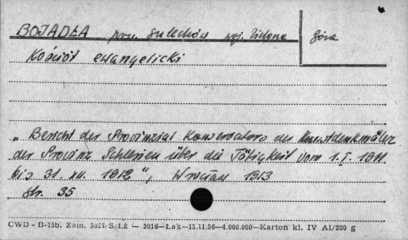 BOJADŁA pow. Sulechów woj. Zielona Góra
Kościół ewangelicki
„Bericht des Provinzial Konservators der Kunstdenkmäler
der Provinz Schlesien über die Tätigkeit vom 1.I. 1911
bis 31. XII. 1912", Wrocław 1913
str. 35
CWD - B-15b. Zam. S/Ł2 — 3016—Łak—15.11.56—6.000.000—Karton kl. IV A1/200 g